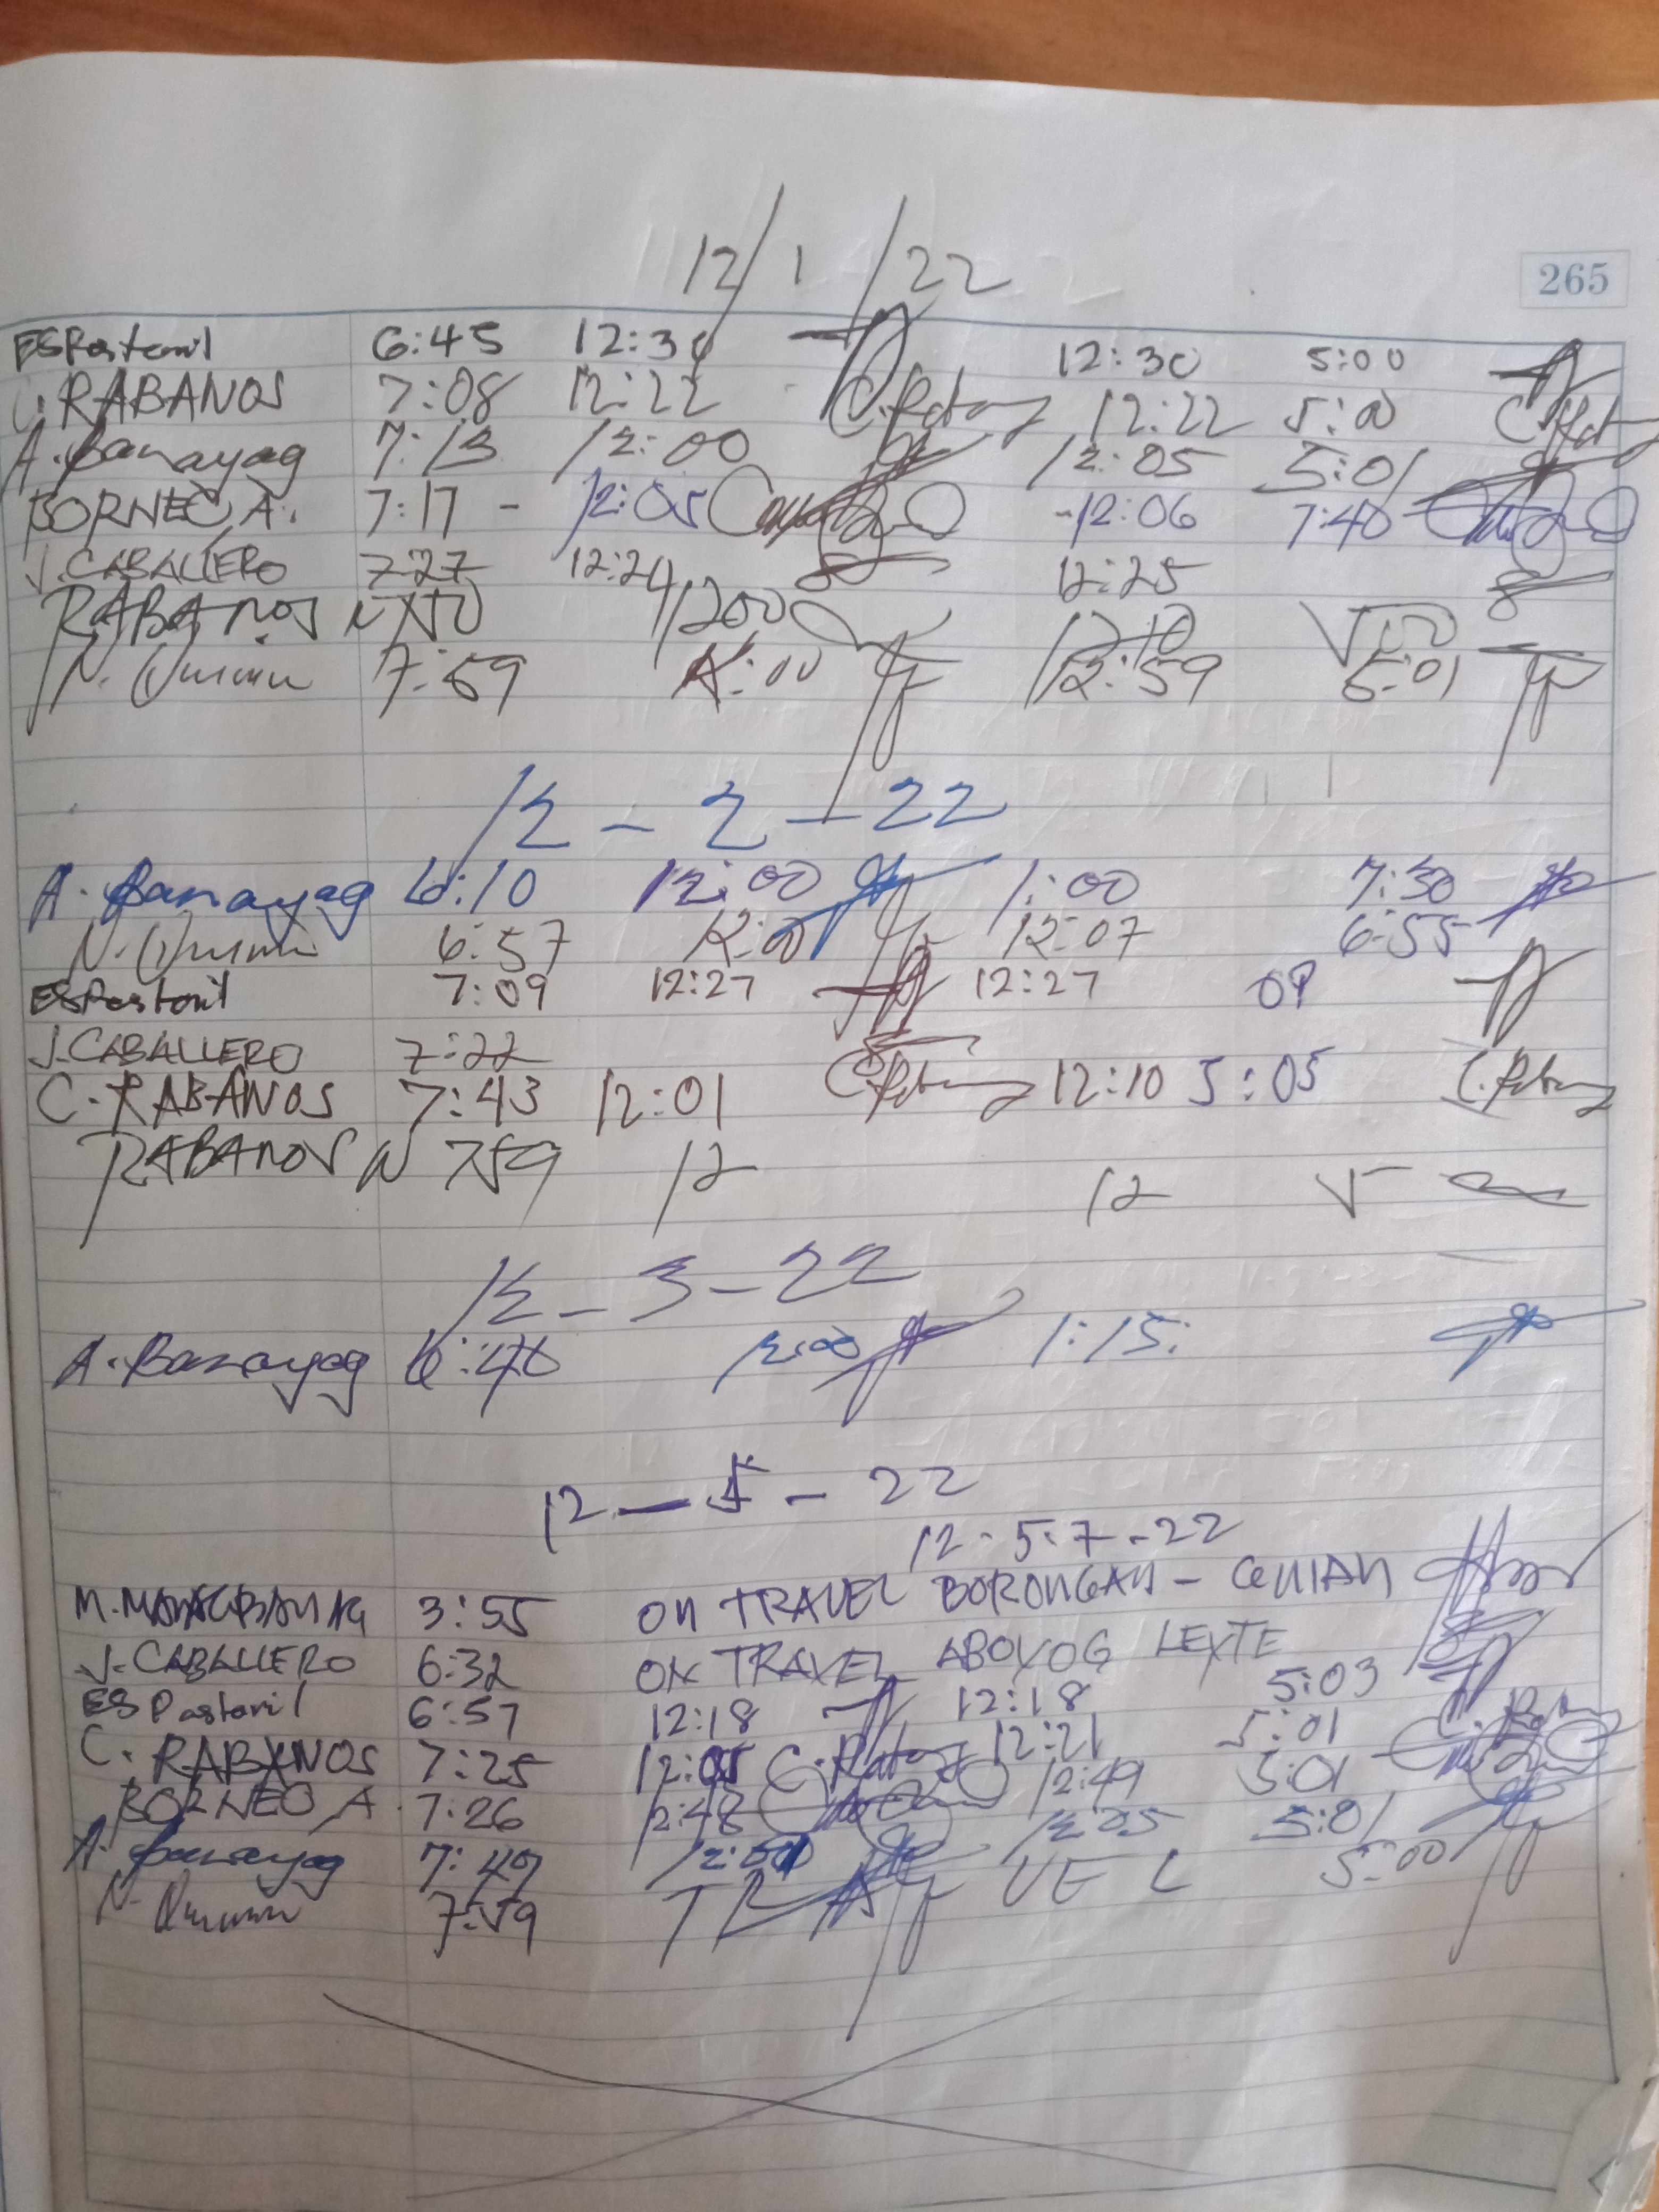 12/1/22
265
ESPastoril 6:45 12:30 12:30 5:00
C. RABANOS 7:08 12:22 C. Rabanos 12:22 5:00
A. Banayag 7:13 12:00 12:05 5:01
BORNEO, A. 7:17 - 12:05 -12:06 7:40
J. CABALLERO 7:27 12:24 12:25
RABANOS N 750 1200 1210 500
N. 7:59 12:00 12:59 5:01
12-2-22
A. Banayag 6:10 12:00 1:00 7:30
N. 6:57 12:00 12:07 6:55
ESPastoril 7:09 12:27 12:27
J. CABALLERO 7:22
C. RABANOS 7:43 12:01 12:10 5:05
RABANOS N 759 12 12 5
12-3-22
A. Banayag 6:40 12:00 1:15
12-5-22
12-5-7-22
3:55 ON TRAVEL BORONGAN -
J. CABALLERO 6:32 ON TRAVEL ABOYOG LEYTE
ES Pastoril 6:57 12:18 12:18 5:03
C. RABANOS 7:25 12:05 12:21 5:01
BORNEO A. 7:26 12:48 12:49 5:01
A. Banayag 7:49 12:05 5:01
N. 7:59 TRAVEL 5:00